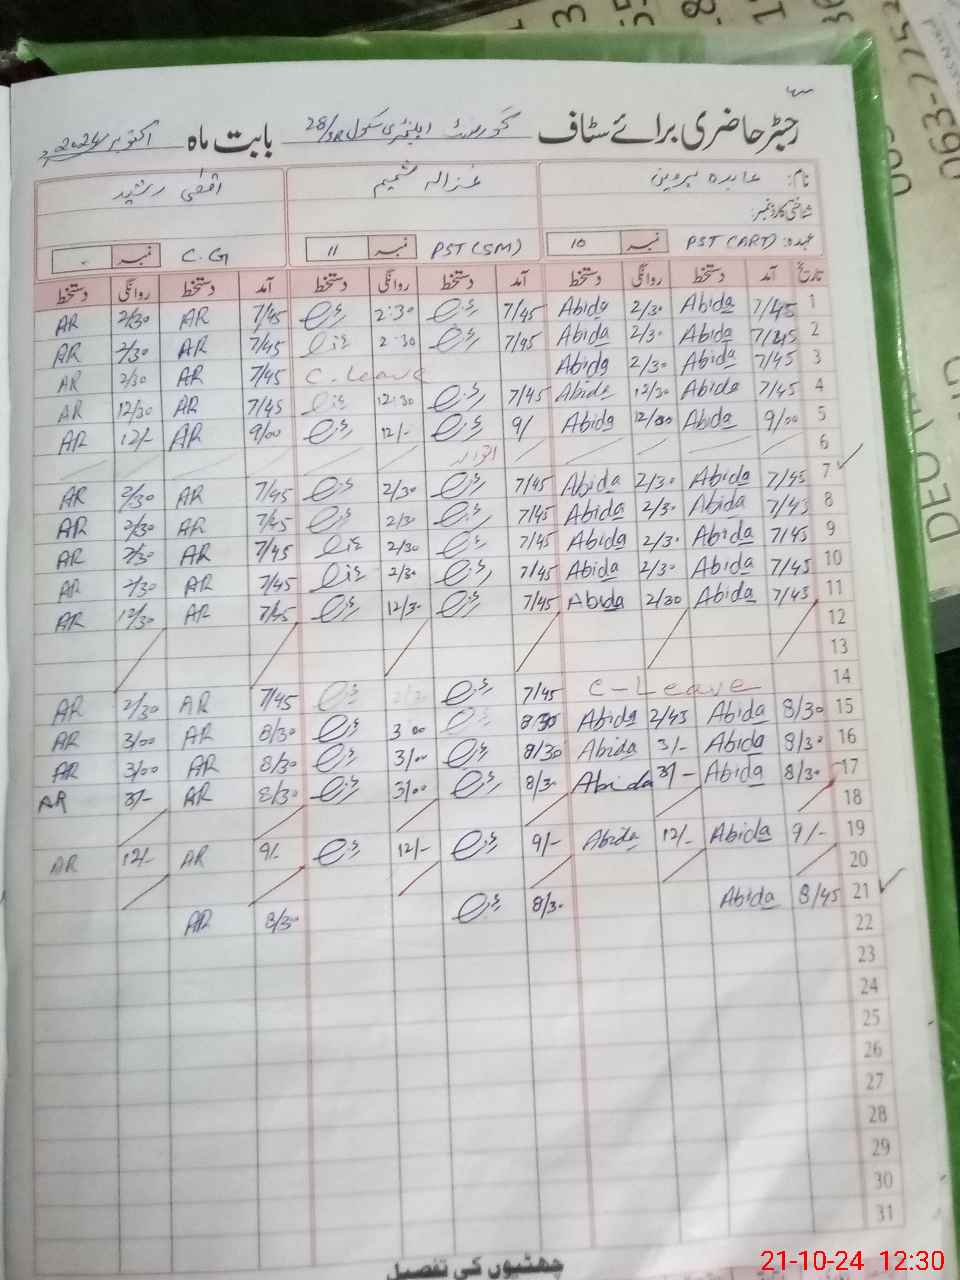 رجسٹر حاضری برائے سٹاف گورنمنٹ ایلیمنٹری سکول 28/3R بابت ماہ اکتوبر 2024
نام: عابدہ پروین غزالہ شمیم اقصٰی رشید
شناختی کارڈ نمبر:
عہدہ: PST (ART) نمبر 10 PST (SM) نمبر 11 C.G نمبر -
تاریخ آمد دستخط روانگی دستخط آمد دستخط روانگی دستخط آمد دستخط روانگی دستخط
1 7/45 Abida 2/30 Abida 7/45 2:30 7/45 AR 2/30 AR
2 7/45 Abida 2/30 Abida 7/45 2:30 7/45 AR 2/30 AR
3 7/45 Abida 2/30 Abida C.Leave 7/45 AR 2/30 AR
4 7/45 Abida 12/30 Abida 7/45 12:30 7/45 AR 12/30 AR
5 9/00 Abida 12/00 Abida 9/ 12/- 9/00 AR 12/- AR
6 اتوار
7 7/45 Abida 2/30 Abida 7/45 2/30 7/45 AR 2/30 AR
8 7/45 Abida 2/30 Abida 7/45 2/30 7/45 AR 2/30 AR
9 7/45 Abida 2/30 Abida 7/45 2/30 7/45 AR 2/30 AR
10 7/45 Abida 2/30 Abida 7/45 2/30 7/45 AR 2/30 AR
11 7/45 Abida 2/30 Abida 7/45 12/30 7/45 AR 12/30 AR
12
13
14 C-Leave 7/45 7/45 AR 2/30 AR
15 8/30 Abida 2/45 Abida 8/30 3 00 8/30 AR 3/00 AR
16 8/30 Abida 3/- Abida 8/30 3/00 8/30 AR 3/00 AR
17 8/30 Abida 3/- Abida 8/30 3/00 8/30 AR 3/- AR
18
19 9/- Abida 12/- Abida 9/- 12/- 9/- AR 12/- AR
20
21 8/45 Abida 8/30 8/30 AR
22
23
24
25
26
27
28
29
30
31
چھٹیوں کی تفصیل
21-10-24 12:30